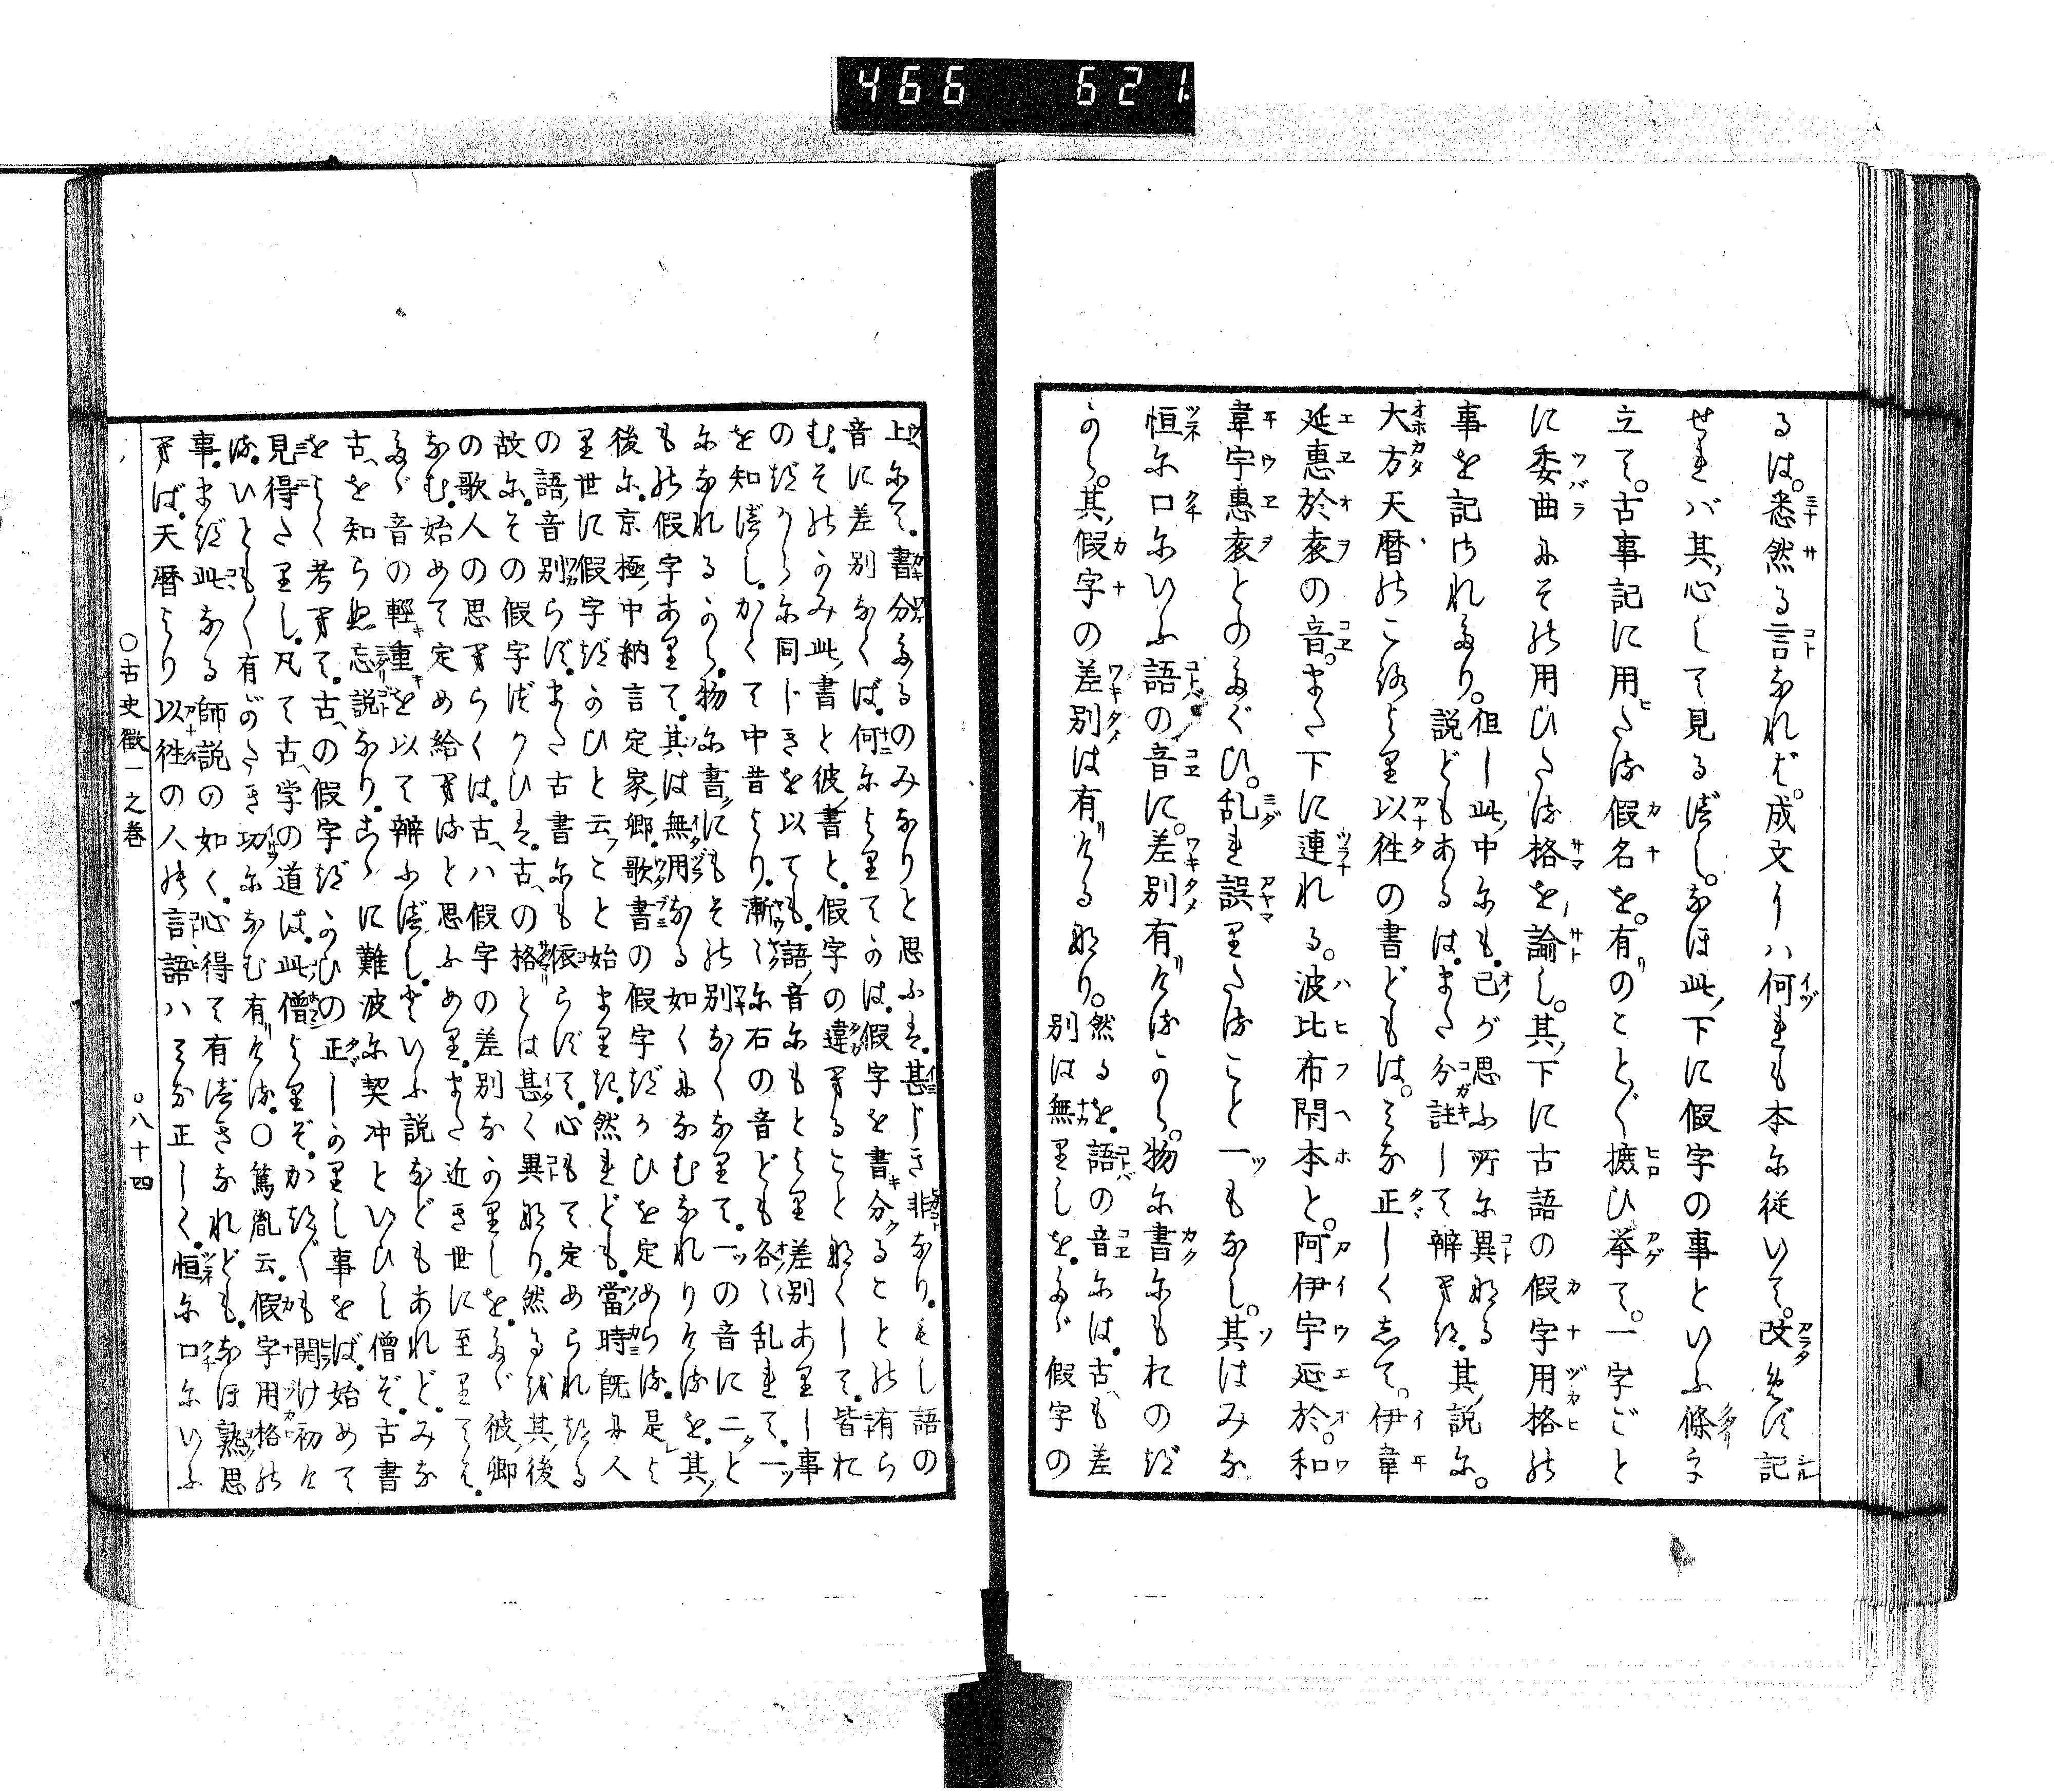 466 621
るは。悉然る言なれど。成文りハ何れも本に従いて。改めず記
せれバ其心して見るべし。なほ此下に假字の事といふ條を
立て。古事記に用たる假名を。有のことごと摭ひ挙て。一字ごと
に委曲にその用ひたる格を論し。其下に古語の假字用格の
事を記されたり。但し此中にも。己が思ふ所に異なる
説どもあるは。また分註して辨へず。其説に。
大方天暦のころより以徃の書どもは。みな正しくして。伊韋
延惠於袁の音。また下に連れる。波比布閇本と。阿伊宇延於。和
韋宇惠袁とのたぐひ。乱れ誤りたること一もなし。其はみな
恒に口にいふ語の音に。差別有けるから。物に書にもおのづ
から。其假字の差別は有ける也。然るを。語の音には。古も差
別は無りしを。たゞ假字の
上にて。書分たるのみなりと思ふは。甚じき非なり。もし語の
音に差別なくば。何によりてかは。假字を書分ることの有ら
む。そのかみ此書と彼書と。假字の違へること无くして。皆お
のづから同じきを以ても。語音にもとより差別ありし事
を知べし。かくて中昔より。漸々に右の音ども各々乱れて。一
になれるから。物に書にもその別なくなりて。一の音に二と
も此假字ありて。其は無用なる如くになむなれりけるを。其
後に。京極中納言定家卿。歌書の假字づかひを定めらる。是よ
り世に假字づかひと云こと始まりき。然れども。當時既に人
の語音別らず。また古書にも依らずて。心もて定められたる
故に。その假字づかひは。古の格とは甚く異也。然るを其後
の歌人の思へらくは。古ハ假字の差別なかりしを。たゞ彼卿
なむ。始めて定め給へると思ふめり。また近き世に至りては。
たゞ音の輕重を以て辨ふべし。といふ説などもあれど。みな
古を知らぬ妄説なり。こゝに難波に契冲といひし僧ぞ。古書
をよく考へて。古の假字づかひの正しかりし事をば。始めて
見得たりし。凡て古学の道は。此僧よりぞ。かつがつも開け初け
る。いともいとも有がたき功になむ有ける。○篤胤云。假字用格の
事。まづ此なる師説の如く。心得て有べきなれども。なほ熟思
へば。天暦より以徃の人の言語ハみな正しく。恒に口にいふ
○古史徴一之巻 ○八十四